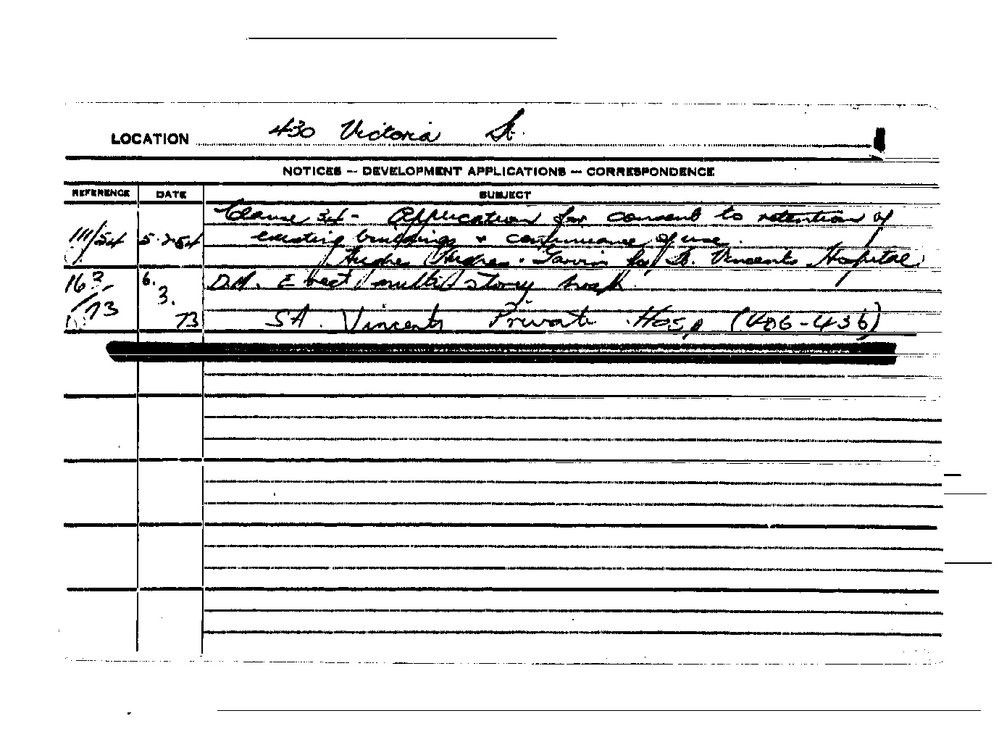 LOCATION 430 Victoria St.
NOTICES — DEVELOPMENT APPLICATIONS — CORRESPONDENCE
REFERENCE DATE SUBJECT
111/54 5.2.54 Clause 34 - Application for consent to retention of
existing buildings & continuance of use.
Hughes Hughes & for St. Vincents Hospital
163/73 6.3.73 D.A. Erect multi story hosp.
St. Vincents Private Hosp (406-436)